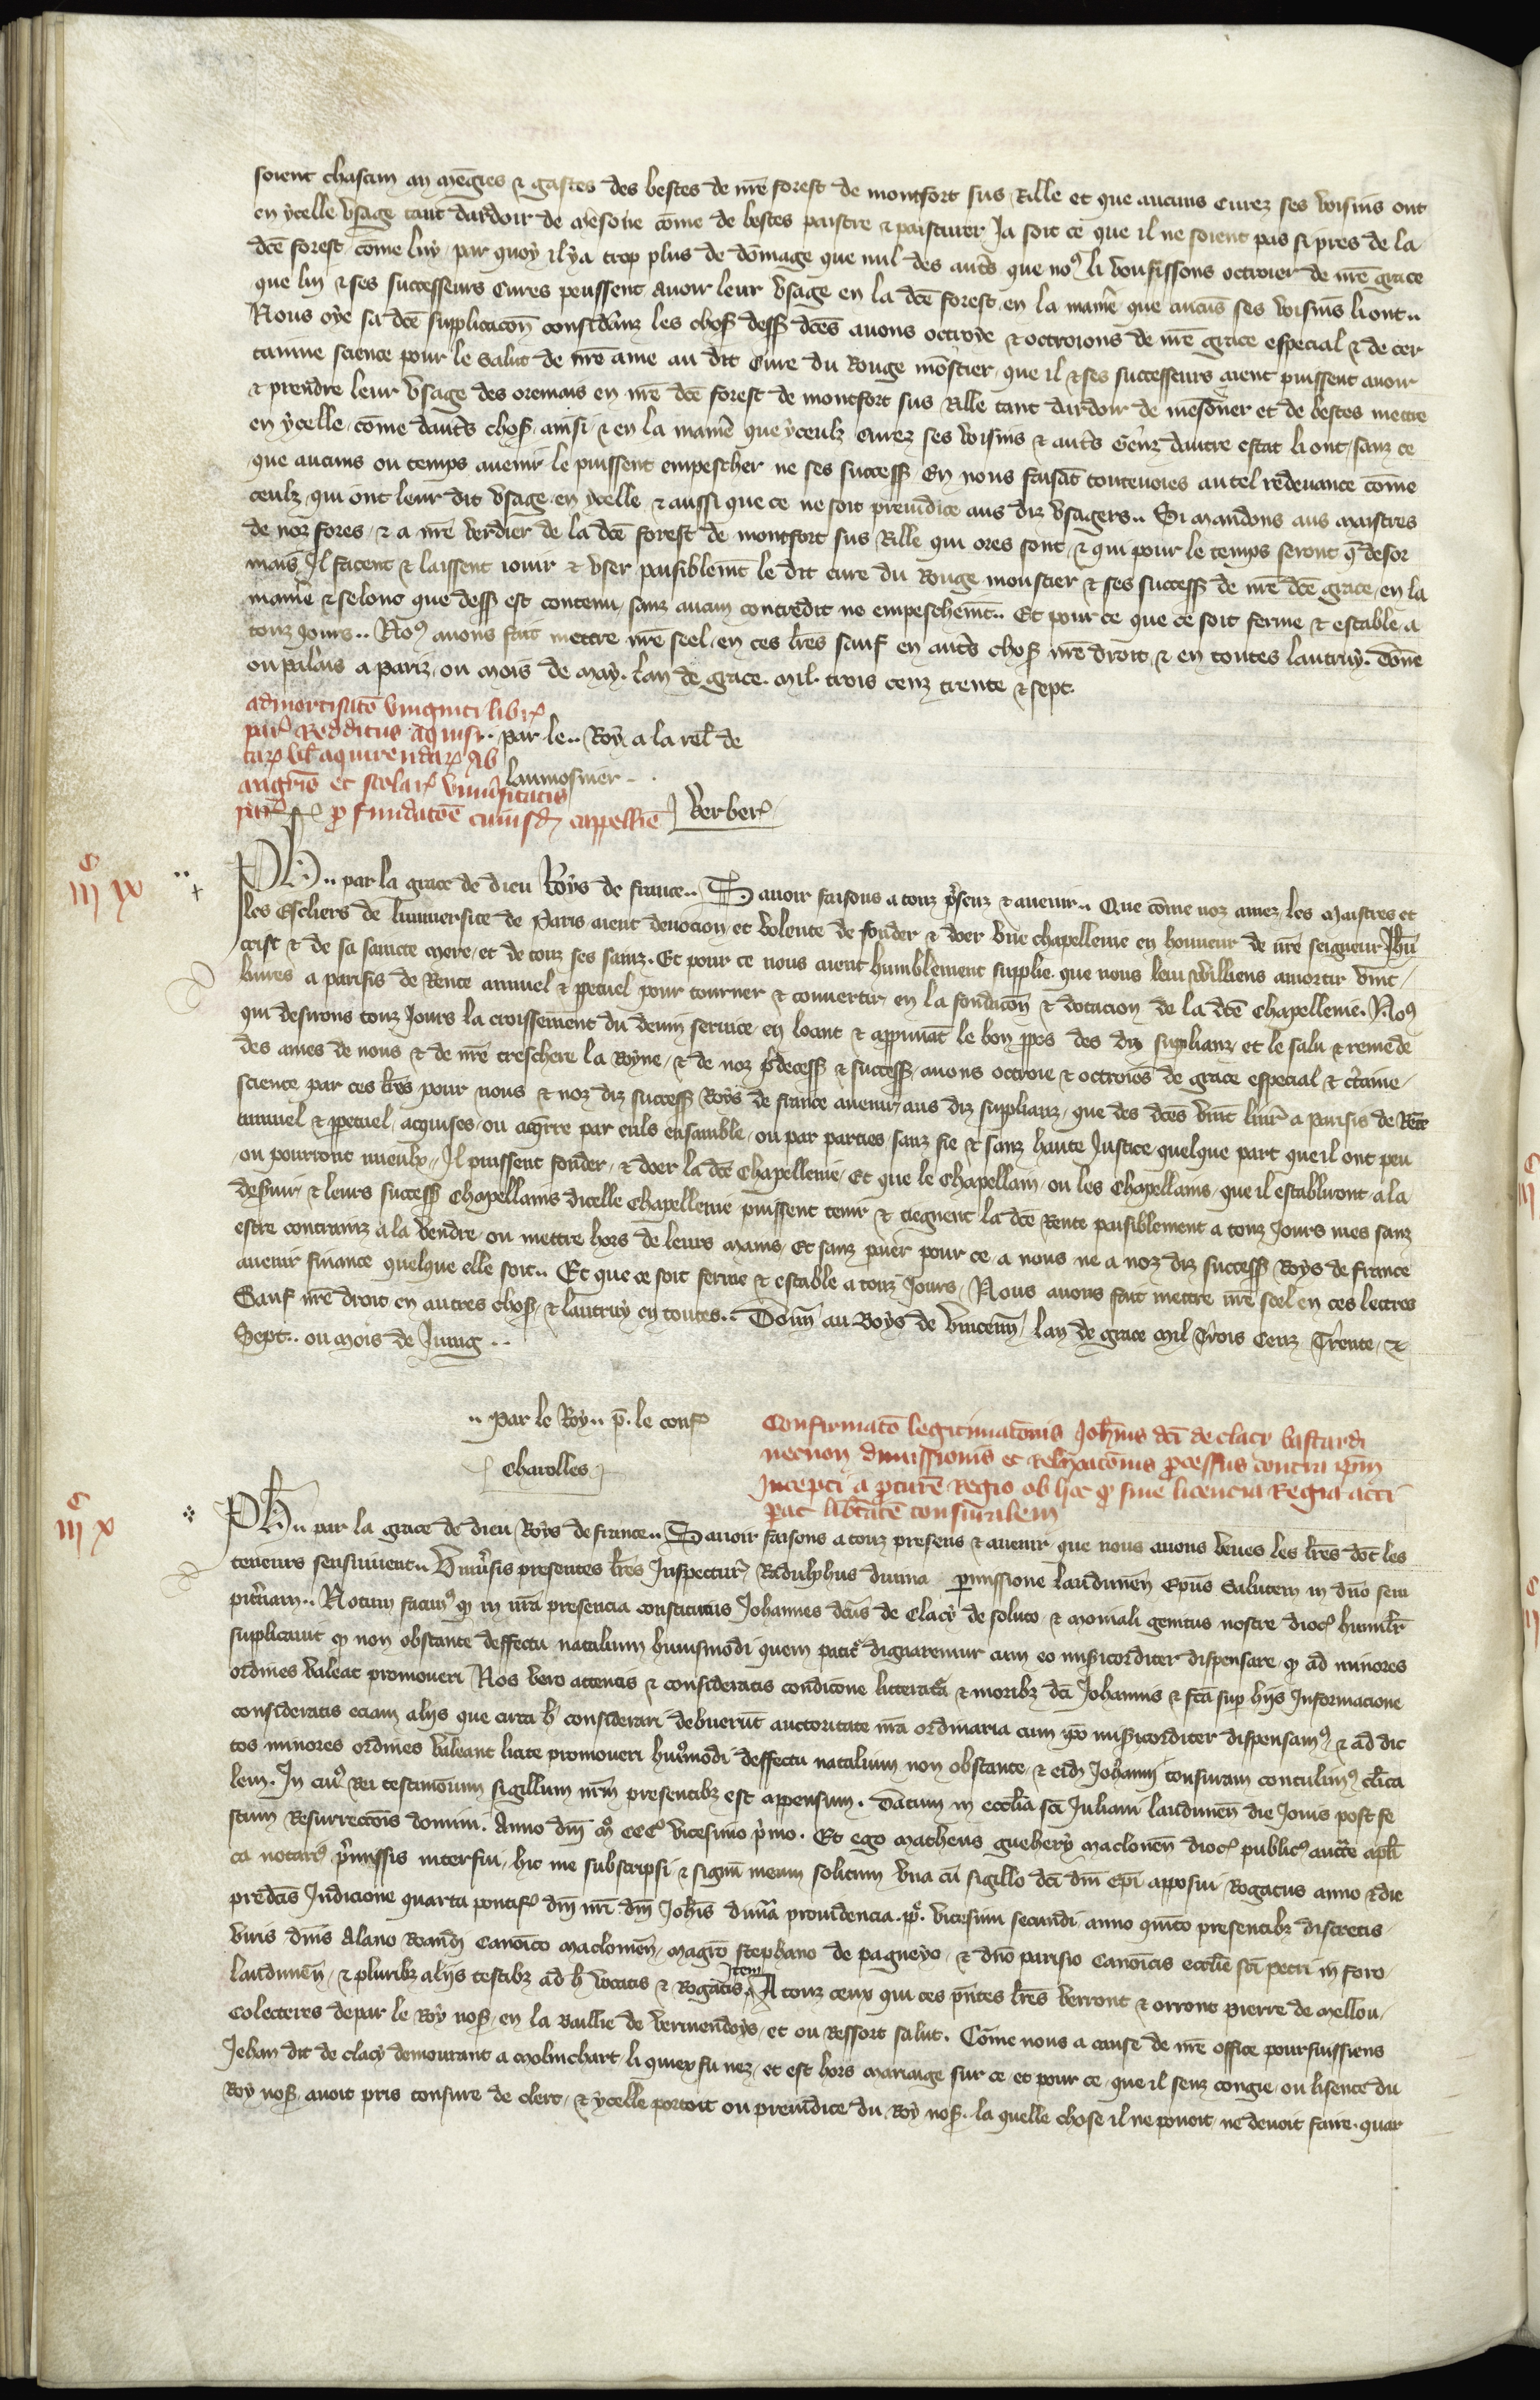 soient chascun an mēgies ⁊ gastes des bestes de nr̄e forest de montfort sus Rille et que aucuns Curez ses voisins ont
en ycelle vsage tant dardoir de mesone cōme de bestes paistre ⁊ pasturer Ja soit ce que il ne soient pas si pres de la
dcē forest cōme luy par quoy il y a trop plus de dōmage que nul des aut̄s que noꝰ li vousissons octroier de nr̄e grace
que luy ⁊ ses successeurs Cures peussent auoir leur vsage en la dcē forest en la manie᷑ que aucūs ses voisins li ont..
Nous oye sa dcē supplicacōn considānz les chos̄ dess̄ dcēs auons octroye ⁊ octroions de nr̄e grace especial ⁊ de cer
tainne science pour le salut de nr̄e ame au dit Cure du Rouge mōstier que il ⁊ ses successeurs aient puissent auoir
⁊ prendre leur vsage des oremais en nr̄e dcē forest de montfort sus Rille tant dardoir de mesoner et de bestes mettre
en ycelle cōme daut̄s chos̄ ainsi ⁊ en la manie᷑ que yceulz Curez ses voisins ⁊ aut̄s Genz dautre estat li ont sanz ce
que aucuns ou temps auenir le puissent empescher ne ses success̄ En nous faisāt toutenoies autel redeuance cōme
ceulz qui ont leur dit vsage en ycelle ⁊ aussi que ce ne soit preiudice aus diz vsagers.. Si mandons aus maistres
de noz fores ⁊ a nr̄e verdier de la dcē forest de montfort sus Rille qui ores sont ⁊ qui pour le temps seront q̄ desor
mais Il facent ⁊ laissent iouir ⁊ vser paisiblemt̄ le dit cure du Rouge moustier ⁊ ses success̄ de nr̄e dcē grace en la
manie᷑ ⁊ selonc que dess̄ est contenu sanz aucun contredit ne empeschemt̄.. Et pour ce que ce soit ferme ⁊ estable a
touz Jours.. Noꝰ auons fait mettre nr̄e seel en ces lr̄es sauf en aut̄s chos̄ nr̄e droit ⁊ en toutes lautruy. Dōne
ou palais a pariz ou mois de may. lan de grace. mil. trois cenz trente ⁊ sept.
admortisatō viginti libr̄
par̄ Redditus aquisi.. par le.. Roy a la rel̄ de
tar̄ vl̄ aquirendar̄ ab
laumosnier..
magrīs et scolar̄ vniūsitatis
par̄ p̄ fundatōe cuiusd̄ cappellīe Verber̄
c
iij ix
Ph.. par la grace de dieu Roys de france.. Sauoir faisons a touz p̄senz ⁊ auenir.. Que cōme noz amez les Maistres et
les Escliers de luniuersite de Paris aient deuocion et volente de fonder ⁊ doer vne chapellenie en honneur de nr̄e seigneur Jhū
crist ⁊ de sa saincte mere et de touz ses sainz. Et pour ce nous aient humblement supplie que nous leur veilliens amortir vint
liures a parisis de Rente annuel ⁊ ppetuel pour tourner ⁊ conuertir en la fondacōn ⁊ dotacion de la dcē chapellenie. Noꝰ
qui desirons touz Jours la croissement du deuin seruice en loant ⁊ approuuāt le bon ppos des diz suplianz et le salu ⁊ remede
des ames de nous ⁊ de nr̄e treschere la Royne ⁊ de noz p̄decess̄ ⁊ success̄ auons octroie ⁊ octroiōs de grace especial ⁊ ct̄aine
science par ces lr̄es pour nous ⁊ noz diz success̄ Roys de france auenir aus diz suplianz que des dcēs vīt liur̄ a parisis de Rēte
annuel ⁊ ppetuel acquises ou acq̄rre par euls ensamble ou par parties sanz fie ⁊ sanz haute Justice quelque part que il ont peu
ou pourront mieulx Il puissent fonder ⁊ doer la dcē Chapellenie Et que le Chapellain ou les Chapellains que il establiront a la
desuir ⁊ leurs success̄ Chapellains dicelle Chapellenie puissent tenir ⁊ tiegnent la dcē Rente paisiblement a touz Jours mes sanz
estre contrainz a la vendre ou mettre hors de leurs mains Et sanz paier pour ce a nous ne a noz diz success̄ Roys de france
auenir finance quelque elle soit.. Et que ce soit ferme ⁊ estable a touz Jours Nous auons fait mettre nr̄e seel en ces lettres
Sauf nr̄e droit en autres chos̄ ⁊ lautruy en toutes.. Donn̄ au Boys de Vincenn̄ lan de grace Mil Trois Cenz Trente ⁊
Sept.. ou mois de Juing..
.. Par le Roy.. p̄. le conf̄
Charolles
Confirmatō legitimatōnis Joh̄nis dci de clacy bastardi
necnon dimissionis et Relaxatōnis p̄cessus contra ip̄m
Incepti a p̄curē Regio ob hoc q̄ sine licencia Regia acce
p̄at lib̄tatē consimilem
c
iij x
Ph.. par la grace de dieu Roys de france.. Sauoir faisons a touz presens ⁊ auenir que nous auons veues les lr̄es dōt les
teneurs sensuiuent.. Vniūsis presentes lr̄es Inspectur̄ Radulphus diuina permissione laudunēn Ep̄us Salutem in dn̄o sem
pit̄nam.. Notum facimꝰ q̄ in nr̄a presencia constitutus Johannes dc̄us de Clacy de soluto ⁊ moniali genitus nostre dioc̄ humilr̄
supplicauit q̄ non obstante deffectu natalium huiusmodi quem patit̄ dignaremur cum eo mis̄icorditer dispensare q̄ ad minores
ordines valeat promoueri Nos vero attentis ⁊ consideratis condicōne litteratura ⁊ moribꝫ dci Johannis ⁊ fcā sup̄ hijs Informacione
consideratis eciam alijs que circa h̄ considerari debuerūt auctoritate nr̄a ordinaria cum ip̄o mis̄icorditer dispensamꝰ ⁊ ad dic
tos minores ordines valeant licite promoueri huiꝰmodi deffectu natalium non obstante ⁊ eidē Johanni tonsuram contulimꝰ cl̄ica
lem. In cuiꝰ Rei testimonium sigillum nr̄m presentibꝫ est appensum. Datum in eccl̄ia sci Juliani laudunēn die Jouis post fe
stum Resurrectōis domini. Anno dn̄i mꝰ cccꝰ vicesimo p̄mo. Et ego Matheus guebery maclouēn dioc̄ publicꝰ auctē apl̄i
ca notariꝰ p̄missis interfui hic me subscripsi ⁊ signū meum solitum vna cū sigillo dci dn̄i Ep̄i apposui Rogatus anno ⁊ die
predcīs Indicione quarta pontif̄ dn̄i nr̄i dn̄i Joh̄is diuīa prouidencia .pp̄. vicesimi secundi anno quīto presentibꝫ discretis
viris dn̄is Alano Roandi Canōico maclouiēn Magrō stephano de pagneyo ⁊ dn̄o parisio Canōicis eccl̄ie sci petri in foro
laudunēn ⁊ pluribꝫ alijs testibꝫ ad h̄ vocatis ⁊ Rogatis. Item A touz ceux qui ces p̄ntes lr̄es verront ⁊ orront pierre de mellou
Colecteres de par le Roy nos̄ en la Baillie de vermendoys et ou Ressort salut. Cōme nous a cause de nr̄e office poursuissiens
Jehan dit de clacy demourant a molinchart li quiex fu nez et est hors mariaige sur ce et pour ce que il senz congie ou lisence du
Roy nos̄ auoit pris tonsure de clerc ⁊ ycelle portoit ou preiudice du Roy nos̄ la quelle chose il ne pouoit ne deuoit faire. quar